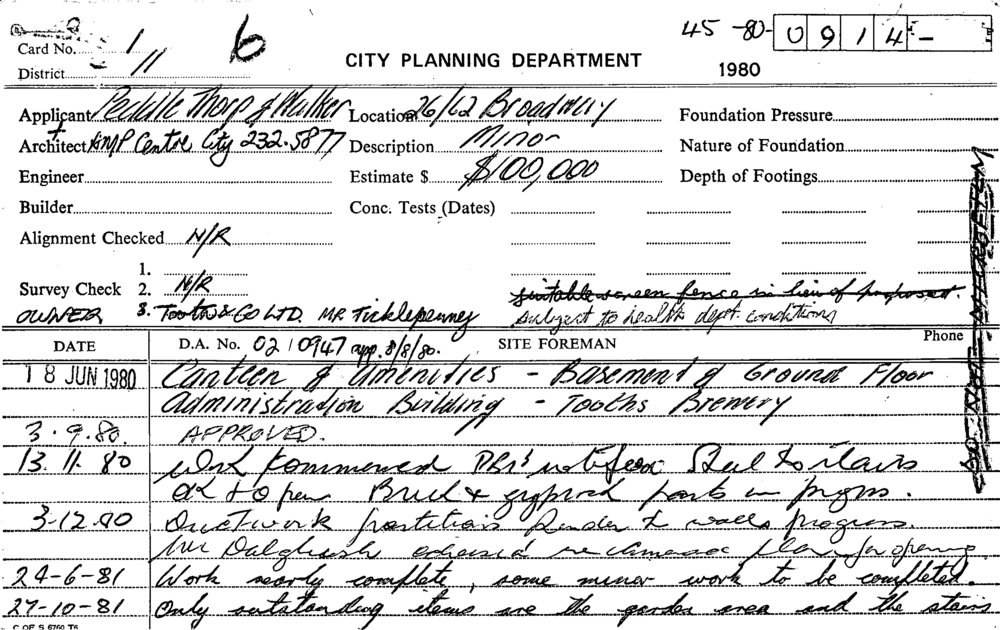 45 -80- 0914-
Card No. 1/11 6
District
CITY PLANNING DEPARTMENT
1980
Applicant Peddle Thorp & Walker Location 26/62 Broadway Foundation Pressure
+
Architect AMP Centre City 232.5877 Description Minor Nature of Foundation
Engineer Estimate $ $100,000 Depth of Footings
Builder Conc. Tests (Dates)
Alignment Checked N/R
1.
Survey Check 2. N/R suitable screen fence in lieu of proposed.
OWNER 3. Tooth & Co LTD. MR Ticklepenney subject to health dept. conditions
DATE D.A. No. 02/0947 app. 8/8/80. SITE FOREMAN Phone
18 JUN 1980 Canteen & Amenities - Basement & Ground Floor
Administration Building - Tooths Brewery
3.9.80. APPROVED.
13.11.80 Work commenced Steel to stairs
OK to open Brick & gyprock parts in progress.
3-12.80 Ductwork partitions Render to walls progress.
Mr Dalgleish advised re plan for opening
24-6-81 Work nearly complete, some minor work to be completed.
27-10-81 Only outstanding items are the garden area and the stairs
C OF S 6760 T6